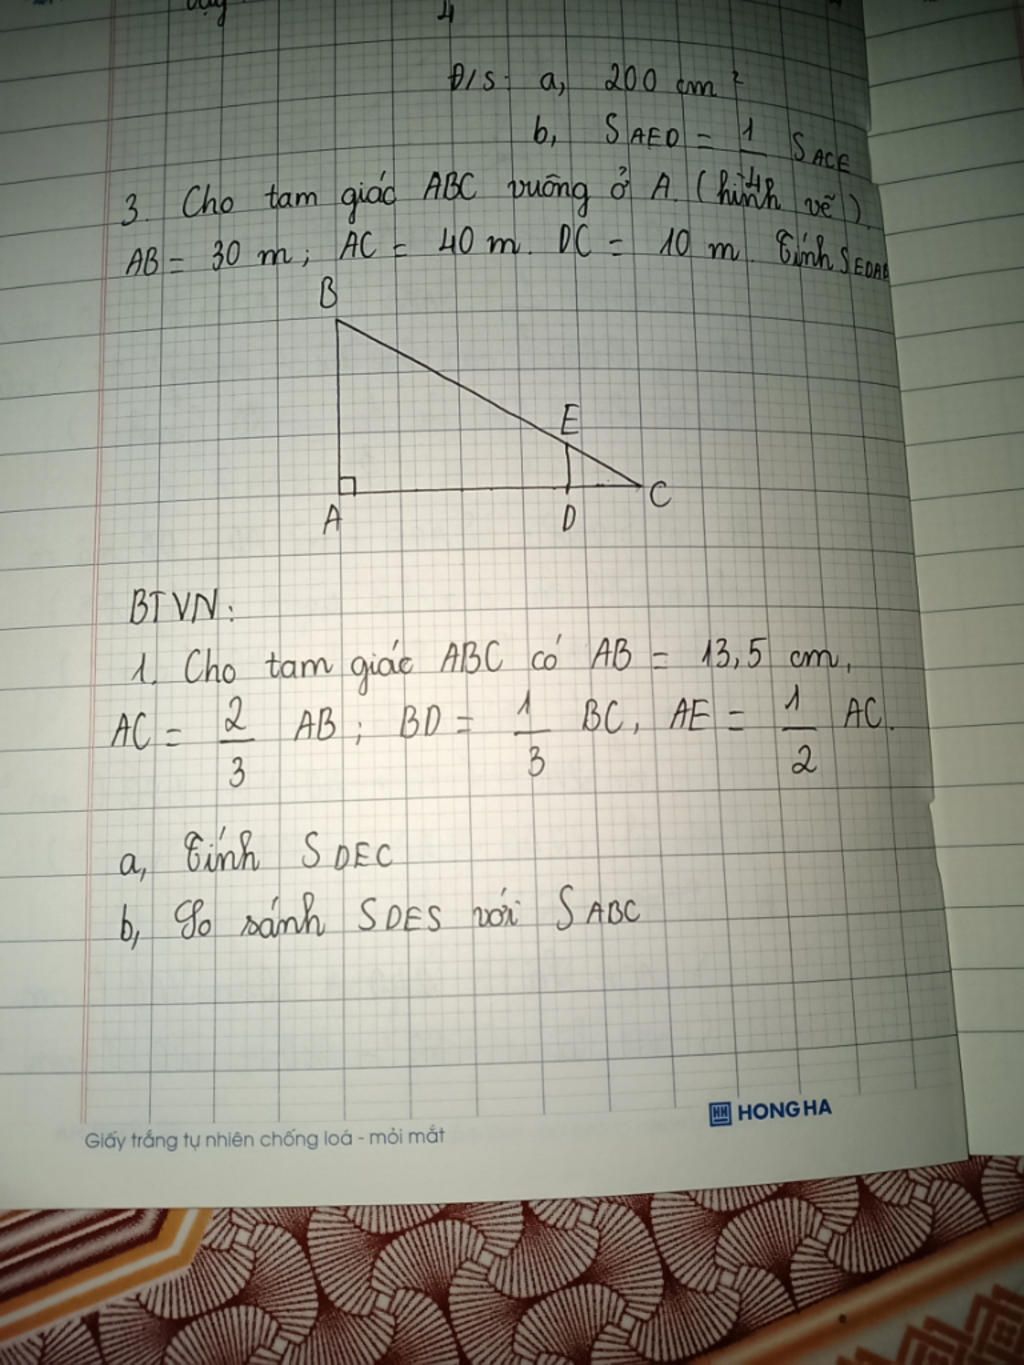 4
Đ/s: a, 200 cm²
b, SAED = 1/4 SACE
3. Cho tam giác ABC vuông ở A. (hình vẽ)
AB = 30 m; AC = 40 m. DC = 10 m. Tính SEDAB
B
E
A
D
C
BTVN:
1. Cho tam giác ABC có AB = 13,5 cm,
AC = 2/3 AB; BD = 1/3 BC, AE = 1/2 AC.
a, Tính SDEC
b, So sánh SDES với SABC
HH HONG HA
Giấy trắng tự nhiên chống loá - mỏi mắt